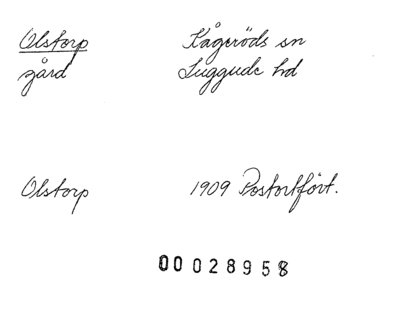 Olstorp Kågeröds sn
gård Luggude hd
Olstorp 1909 Postortfört.
00028958